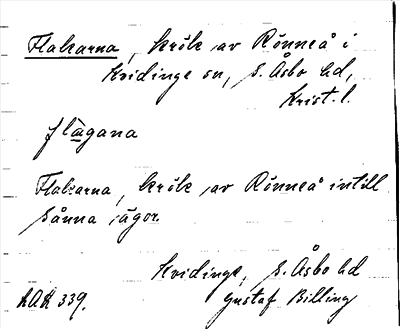 Flakarna, krök av Rönneå i
Kvidinge sn, S. Åsbo hd,
Krist. l.
flägana
Flakarna, krök av Rönneå intill
Sånna ägor.
Kvidinge, S. Åsbo hd
LAL 339. Gustaf Billing